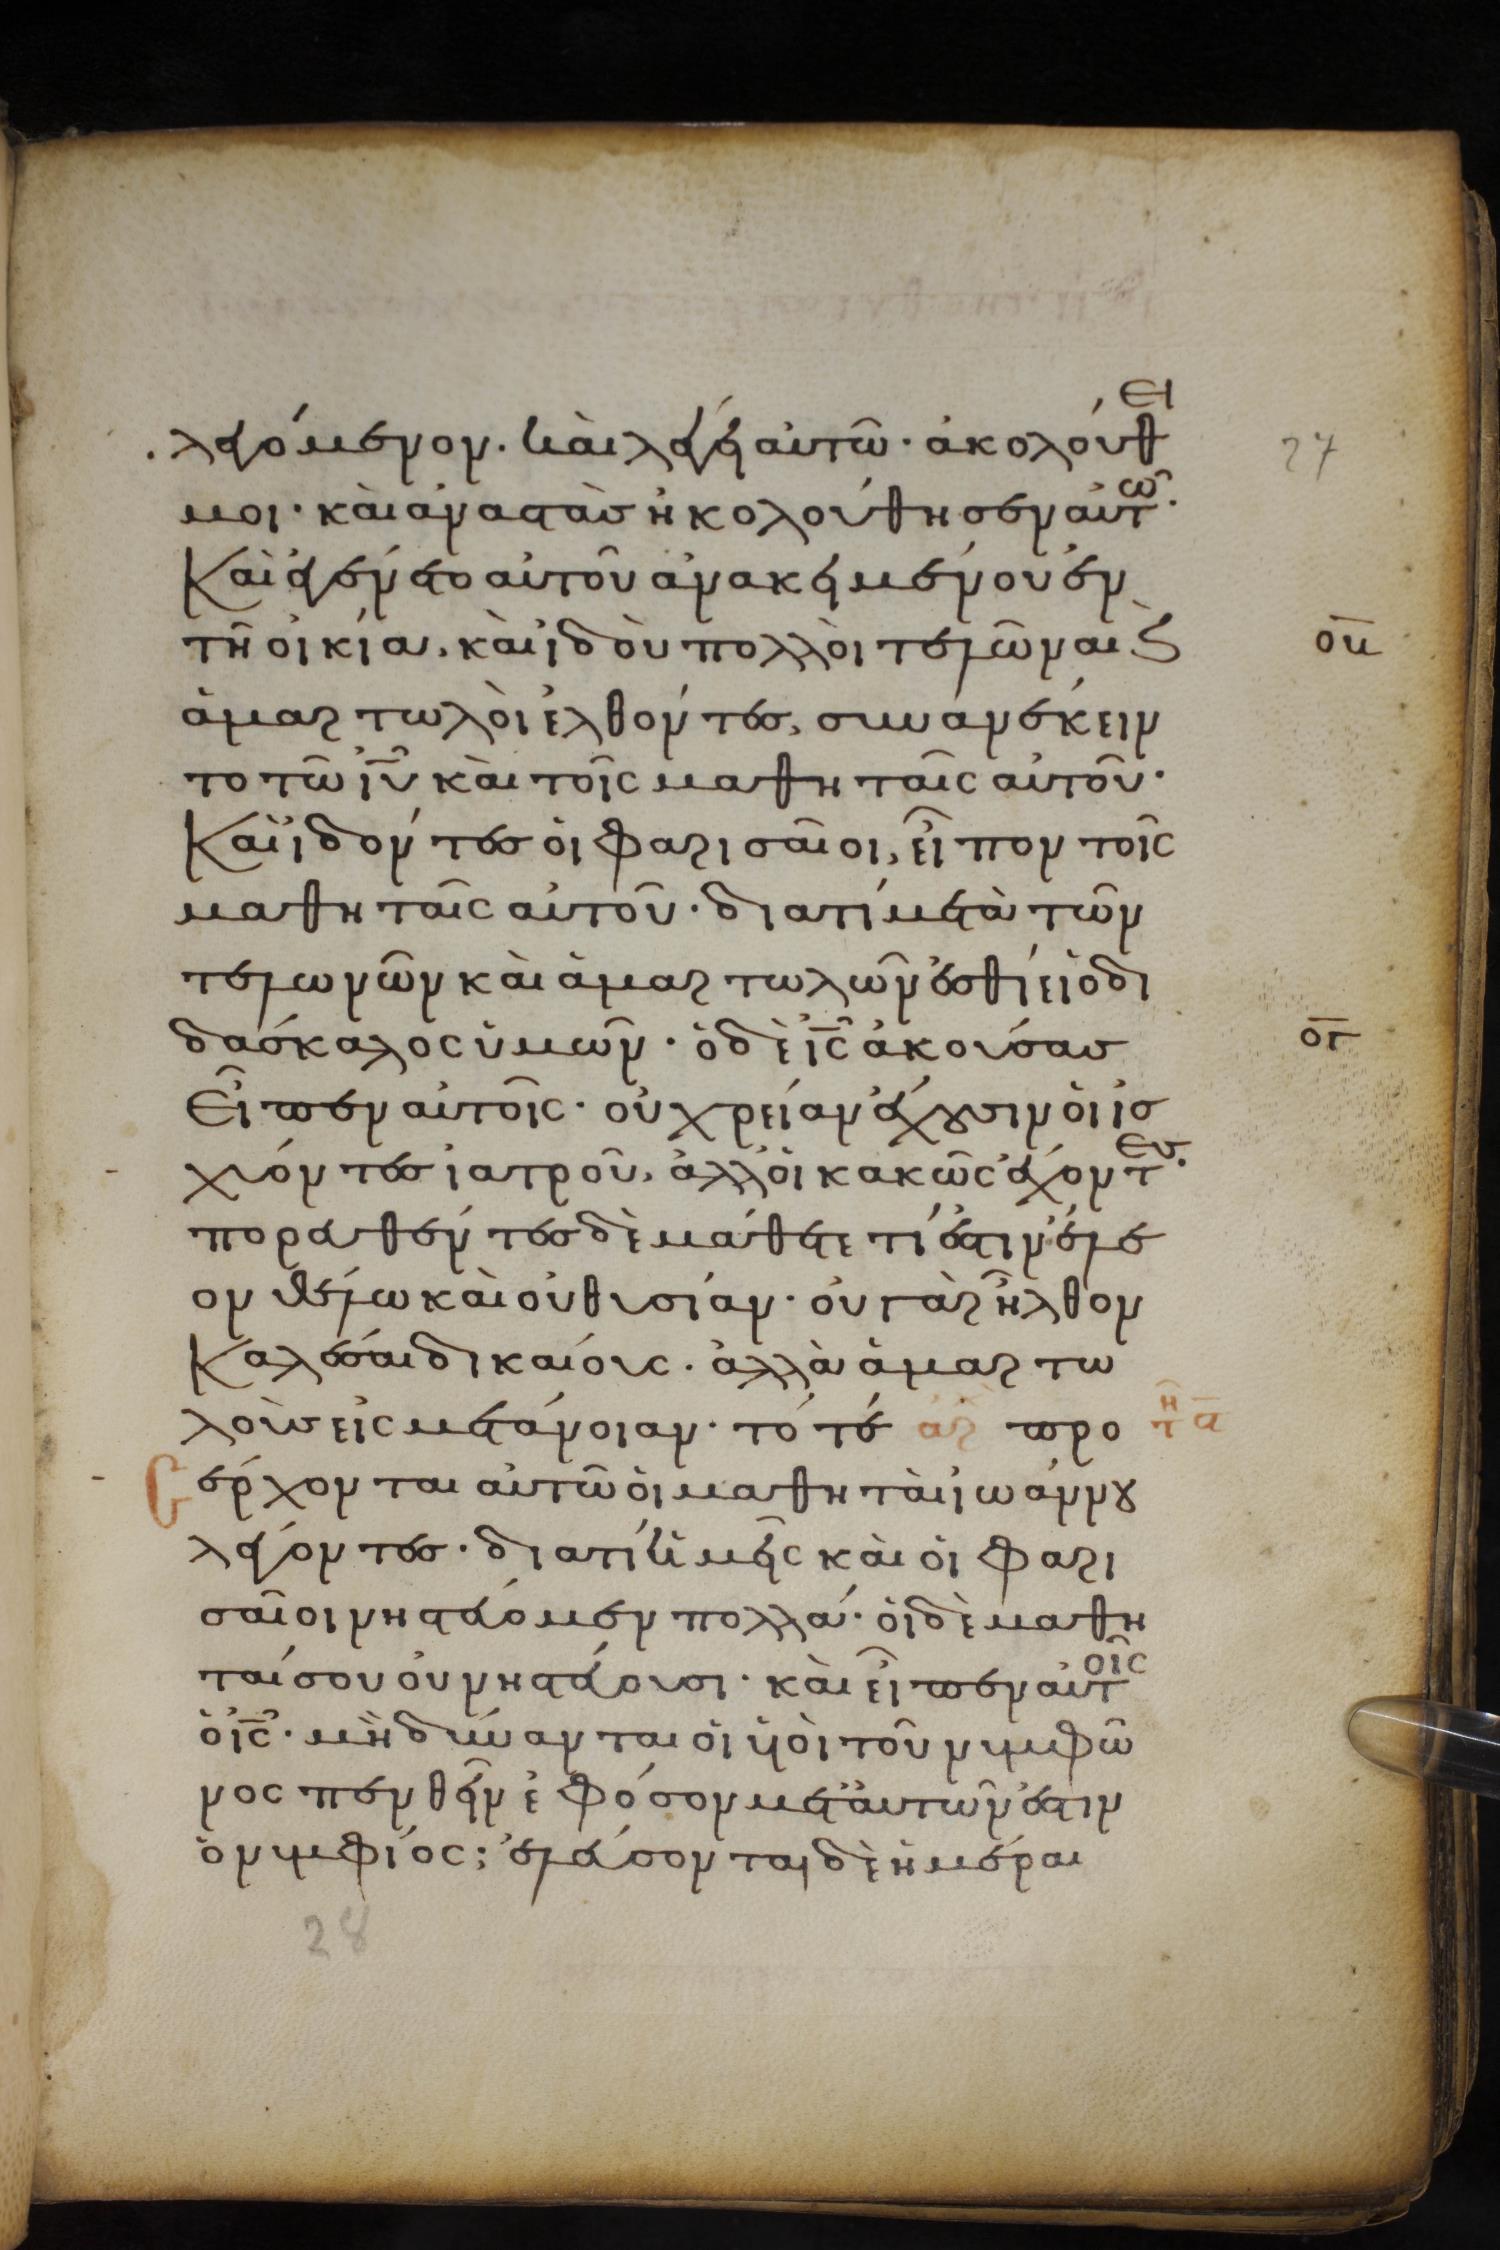 λεγόμενον. καὶ λέγει αὐτῶ· ἀκολούθει
μοι· καὶ ἀναστὰσ ἠκολούθησεν αὐτῶ.
Καὶ ἐγένετο αὐτοῦ ἀνακειμένου ἐν
τῆ οἰκία, καὶ ἰδοὺ πολλοὶ τελῶναι ϗ
ἁμαρτωλοὶ ἐλθόντεσ, συνανέκειν
το τῶ ἰῦ καὶ τοῖς μαθηταῖς αὐτοῦ·
Καὶ ἰδόντεσ οἱ φαρισαῖοι, εἶπον τοῖς
μαθηταῖς αὐτοῦ· διατί μετὰ τῶν
τελωνῶν καὶ ἁμαρτωλῶν ἐσθίει ὁ δι
δάσκαλος ὑμῶν· ὁ δὲ ἰς ἀκούσασ
εἶπεν αὐτοῖς· οὐ χρείαν ἔχουσιν οἱ ἰσ
χύοντεσ ἰατροῦ, ἀλλ' οἱ κακῶς ἔχοντεσ.
πορευθέντεσ δὲ μάθετε τί ἐστιν ἔλε
ον θέλω καὶ οὐ θυσίαν· οὐ γὰρ ἦλθον
Καλέσαι δικαίους· ἀλλὰ ἁμαρτω
λοὺσ εἰς μετάνοιαν· τότε ἀρ προ
σέρχονται αὐτῶ οἱ μαθηταὶ ἰωάννου
λέγοντεσ· διατί ἡμεῖς καὶ οἱ φαρι
σαῖοι νηστεύομεν πολλά· οἱ δὲ μαθη
ταί σου οὐ νηστεύουσι· καὶ εἶπεν αὐτοῖς
ὁ ἰς· μὴ δύνανται οἱ υἱοὶ τοῦ νυμφῶ
νος πενθεῖν ἐφόσον μετ' αὐτῶν ἐστιν
ὁ νυμφίος; ἐλεύσονται δὲ ἡμέραι
27
28